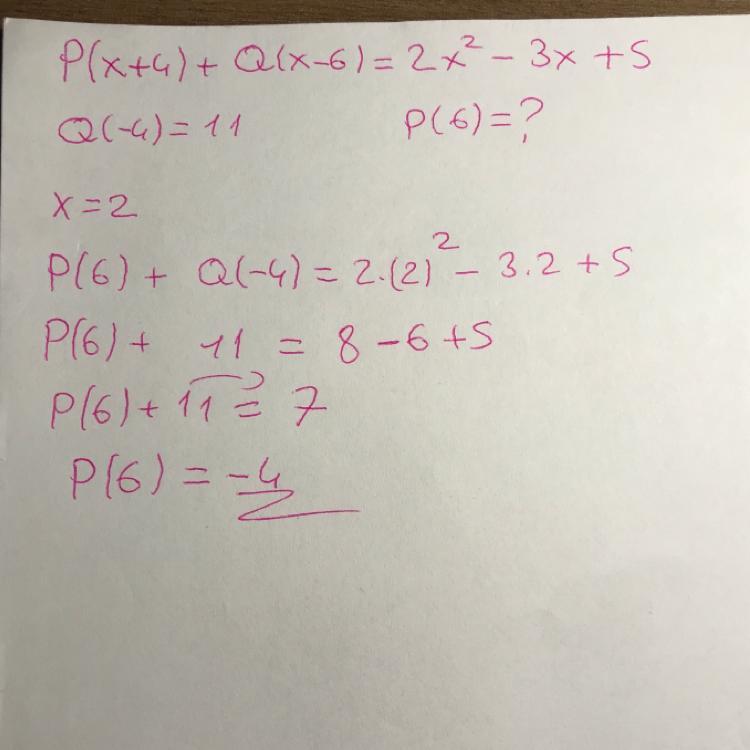 P(x+4) + Q(x-6) = 2x² - 3x + 5
Q(-4) = 11 P(6) = ?
x = 2
P(6) + Q(-4) = 2.(2)² - 3.2 + 5
P(6) + 11 = 8 - 6 + 5
P(6) + 11 = 7
P(6) = -4